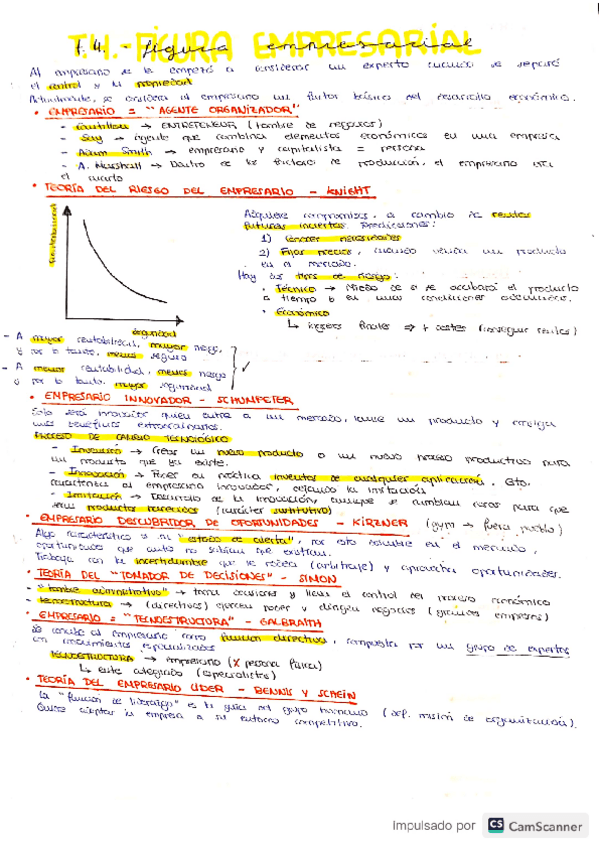 T.4.- FIGURA EMPRESARIAL
Al empresario se le empezó a considerar un experto cuando se separó
el control y la propiedad
Actualmente, se considera al empresario un factor básico del desarrollo económico.
• EMPRESARIO = "AGENTE ORGANIZADOR"
- Cantillon → ENTREPRENEUR (hombre de negocios)
- Say → agente que combina elementos económicos en una empresa
- Adam Smith → empresario y capitalista = persona
- A. Marshall → Dentro de los factores de producción, el empresario
el cuarto
• TEORÍA DEL RIESGO DEL EMPRESARIO - KNIGHT
Rentabilidad
seguridad
Adquiere compromisos, a cambio de rentas
futuras inciertas.
1) Conocer necesidades
2) Fijar precios, cuando venda un producto
en el mercado.
Hay dos tipos de riesgo:
• Técnico → Miedo de si se acabará el producto
a tiempo o en unas condiciones adecuadas.
• Económico
↳ ingresos finales ⇒ + costes (conseguir rentas)
- A mayor rentabilidad, mayor riesgo,
y por lo tanto, menos seguro
- A menos rentabilidad, menos riesgo
y por lo tanto, mayor seguridad
• EMPRESARIO INNOVADOR - SCHUMPETER
Solo será innovador quien entre a un mercado, lance un producto y consiga
unos beneficios extraordinarios.
PROCESO DE CAMBIO TECNOLÓGICO
- Invención → Crear un nuevo producto o un nuevo proceso productivo para
un producto que ya existe.
- Innovación → Poner en práctica inventos de cualquier aplicación. Esto
caracteriza al empresario innovador, evitando la imitación
- Imitación → Desarrollo de la innovación, aunque se cambian cosas para que
sean productos parecidos (carácter sustitutivo)
• EMPRESARIO DESCUBRIDOR DE OPORTUNIDADES - KIRZNER (gym → fuera pueblo)
Algo característico es su "estado de alerta", por esto descubre en el mercado,
oportunidades que antes no sabían que existían.
Trabaja con la incertidumbre que le rodea (arbitraje) y aprovecha oportunidades.
• TEORÍA DEL "TOMADOR DE DECISIONES" - SIMON
- "hombre administrativo" → toma decisiones y lleva el control del proceso económico
- tecnoestructura → (directivos) ejercen poder y dirigen negocios (grandes empresas)
• EMPRESARIO = "TECNOESTRUCTURA" - GALBRAITH
Se concibe al empresario como función directiva, compuesta por un grupo de expertos
con conocimientos especializados
TECNOESTRUCTURA → empresario (X persona física)
↳ ente integrado (especialistas)
• TEORÍA DEL EMPRESARIO LÍDER - BENNIS Y SCHEIN
La "función de liderazgo" es la guía del grupo humano (def. misión de organización).
Quiere adaptar la empresa a su entorno competitivo.
Impulsado por CS CamScanner